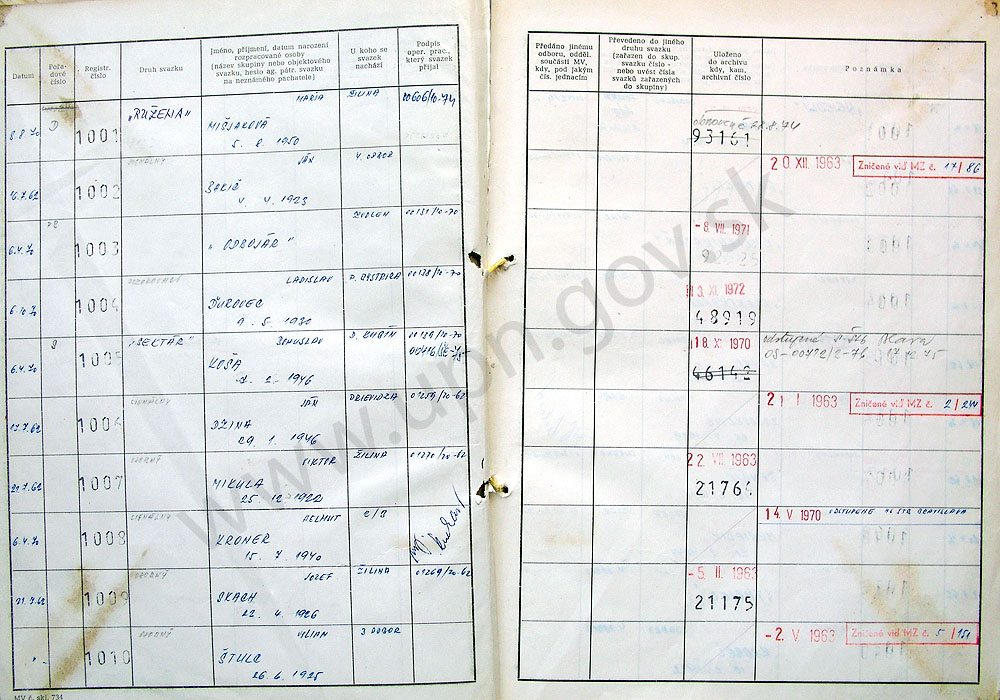 Datum
Pořa-
dové
číslo
Registr.
číslo
Druh svazku
Jméno, příjmení, datum narození
rozpracované osoby
(název skupiny nebo objektového
svazku, heslo ag. pátr. svazku
na neznámého pachatele)
U koho se
svazek
nachází
Podpis
oper. prac.,
který svazek
přijal
Předáno jinému
odboru, odděl.
součásti MV,
kdy, pod jakým
čís. jednacím
Převedeno do jiného
druhu svazku
(zařazen do skup.
svazku číslo -
nebo uvést čísla
svazků zařazených
do skupiny)
Uloženo
do archivu
kdy, kam,
archivní číslo
Poznámka
8.8.70 1001 „RŮŽENA" MARIA ŽILINA 00606/10-74
MIŠJAKOVÁ
5. 8. 1950
obnovené 22.8.74
93161
1002 JÁN V. ODBOR
4. 1923
20 XII. 1963 Zničené viď MZ č. 17/86
6.4.70 1003 ZVOLEN 00131/10-70
-8. VII. 1971
1004 LADISLAV B. BYSTRICA 00138/10-70
ĎUROVEC
9. 5. 1930
3. XI. 1972
48919
6.4.70 1005 „SEKTÁR" BOHUSLAV D. KUBÍN 00129/10-70
KOŠA
2. 1946
18 XI. 1970
46142
17.7.62 1006 JÁN PRIEVIDZA 01259/20-62
DŽINA
29. 1. 1946
21 I 1963 Zničené viď MZ č. 2/
21.7.62 1007 VIKTOR ŽILINA 01270/20-62
MIKULA
25. 12. 1922
22. VII. 1963
21764
6.4.70 1008 HELMUT
KRONER
15. 7. 1940
14. V 1970 ODSTÚPENÉ BRATISLAVA
21.7.62 1009 JOZEF ŽILINA 01269/20-62
SKACH
22. 4. 1926
-5. II. 1963
21175
1010 VILIAM 3 ODBOR
ŠTULC
26. 6. 1925
-2. V 1963 Zničené viď MZ č. 5/151
MV č. skl. 734
www.upn.gov.sk